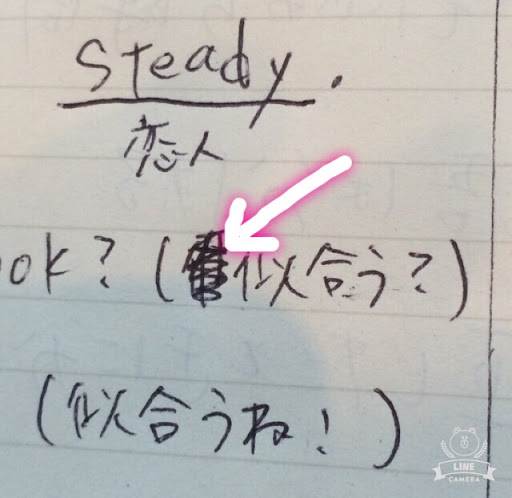 steady.
恋人
ok? (似合う?)
(似合うね! )
LINE
CAMERA